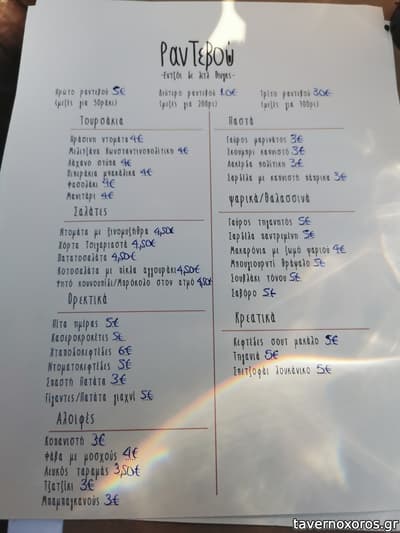 ΡανΤεβού
Πρώτο ραντεβού 5€
(μεζές για 50ράκι)
Δεύτερο ραντεβού 10€
(μεζές για 200ρι)
Τρίτο ραντεβού 30€
(μεζές για 700ρι)
Τουρσάκια
Πράσινη ντομάτα 4€
Μελιτζάνα Κωνσταντινουπολίτικη 4€
Λάχανο στύπα 4€
Πιπεράκια μπακάλικα 4€
Φασολάκι 4€
Μανιτάρι 4€
Σαλάτες
Ντομάτα με ξινομυζήθρα 4,50€
Χόρτα Τσιγαριαστά 4,50€
Πατατοσαλάτα 4,50€
Κοτοσαλάτα με πίκλα αγγουράκι 4,50€
Ψητό κουνουπίδι/Μπρόκολο στον ατμό 4,50€
Ορεκτικά
Πίτα ημέρας 5€
Κασεροκροκέτες 5€
Χταποδοκεφτέδες 6€
Ντοματοκεφτέδες 5€
Σπαστή Πατάτα 3€
Γίγαντες/Πατάτα γιαχνί 5€
Αλοιφές
Κοπανιστή 3€
Φάβα με μοσχούς 4€
Λευκός ταραμάς 3,50€
Τζατζίκι 3€
Μπαμπαγκανούς 3€
Παστά
Γαύρος μαρινάτος 3€
Σκουμπρί καπνιστό 3€
Λακέρδα πολίτικη 3€
Σαρδέλα με καπνιστή πάπρικα 3€
Ψαρικά/Θαλασσινά
Γαύρος τηγανητός 5€
Σαρδέλα παντρεμένη 5€
Μακαρόνια με ζωμό ψαριού 4€
Μπουγιουρντί θράψαλο 5€
Σουβλάκι τόνου 5€
Σαβόρο 5€
Κρεατικά
Κεφτέδες σουτ μακάλο 5€
Τηγανιά 5€
Σπετζοφάι λουκάνικο 5€
tavernoxoros.gr